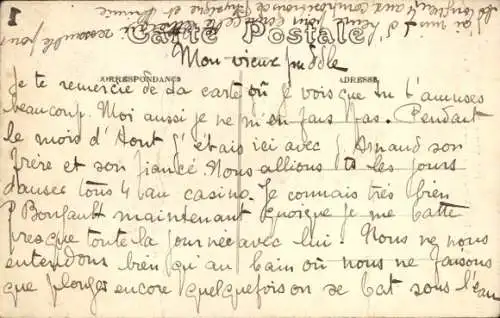 1
Carte Postale
CORRESPONDANCE
ADRESSE
Mon vieux
Je te remercie de ta carte où je vois que tu t'amuses
beaucoup. Moi aussi je ne m'en fais pas. Pendant
le mois d'Aout j'étais ici avec J. Arnaud son
frère et son fiancé. Nous allions ts les jours
danser tous 4 au casino. Je connais très bien
P Bongault maintenant quoique je me batte
presque toute la journée avec lui. Nous ne nous
entendons bien qu'au bain où nous ne faisons
que plonger encore quelquefois on se bat sous l'eau